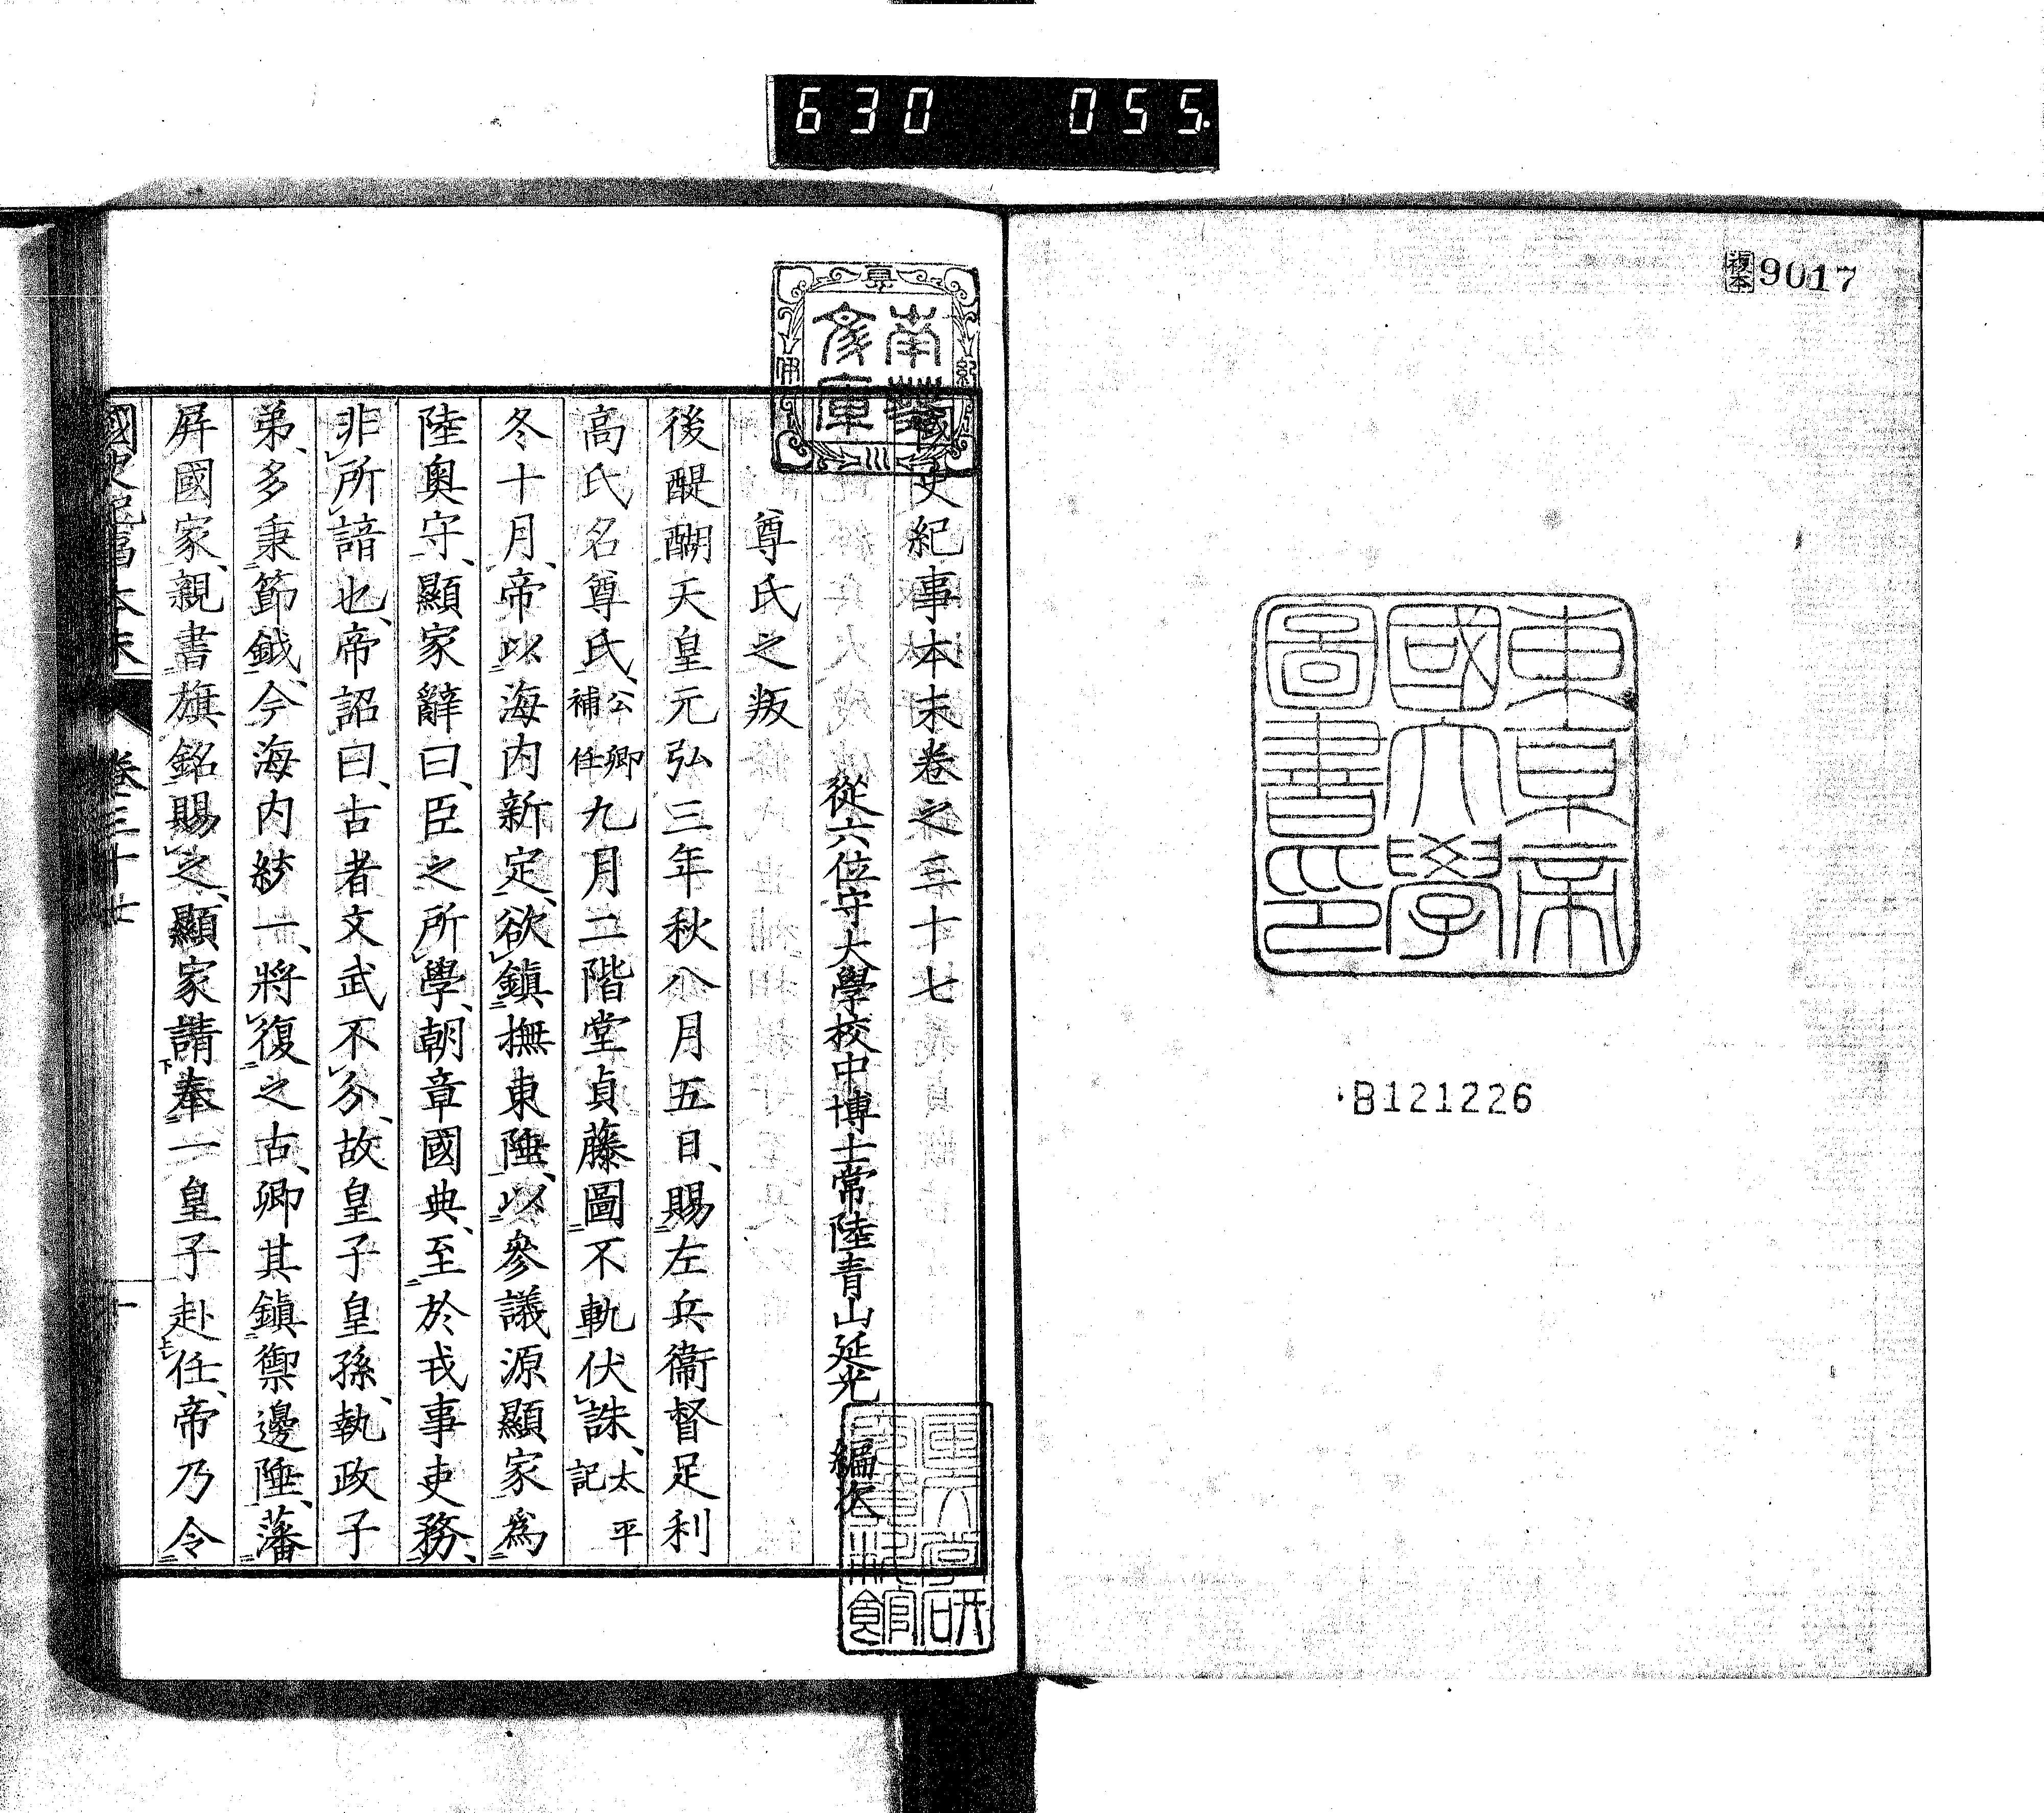 630 055.
複本 9017
東京帝
國大學
圖書印
B121226
國史紀事本末卷之三十七
從六位守大學校中博士常陸青山延光 編次
尊氏之叛
後醍醐天皇元弘三年秋八月五日、賜左兵衞督足利
高氏名尊氏、公卿補任九月二階堂貞藤圖不軌伏誅、太平記
冬十月、帝以海内新定、欲鎮撫東陲、以參議源顯家爲
陸奥守、顯家辭曰、臣之所學、朝章國典、至於戎事吏務、
非所諳也、帝詔曰、古者文武不分、故皇子皇孫、執政子
弟、多秉節鉞、今海内統一、將復之古、卿其鎮禦邊陲、藩
屏國家、親書旗銘賜之、顯家請奉一皇子赴任、帝乃令
國史紀事本末 卷三十七 一